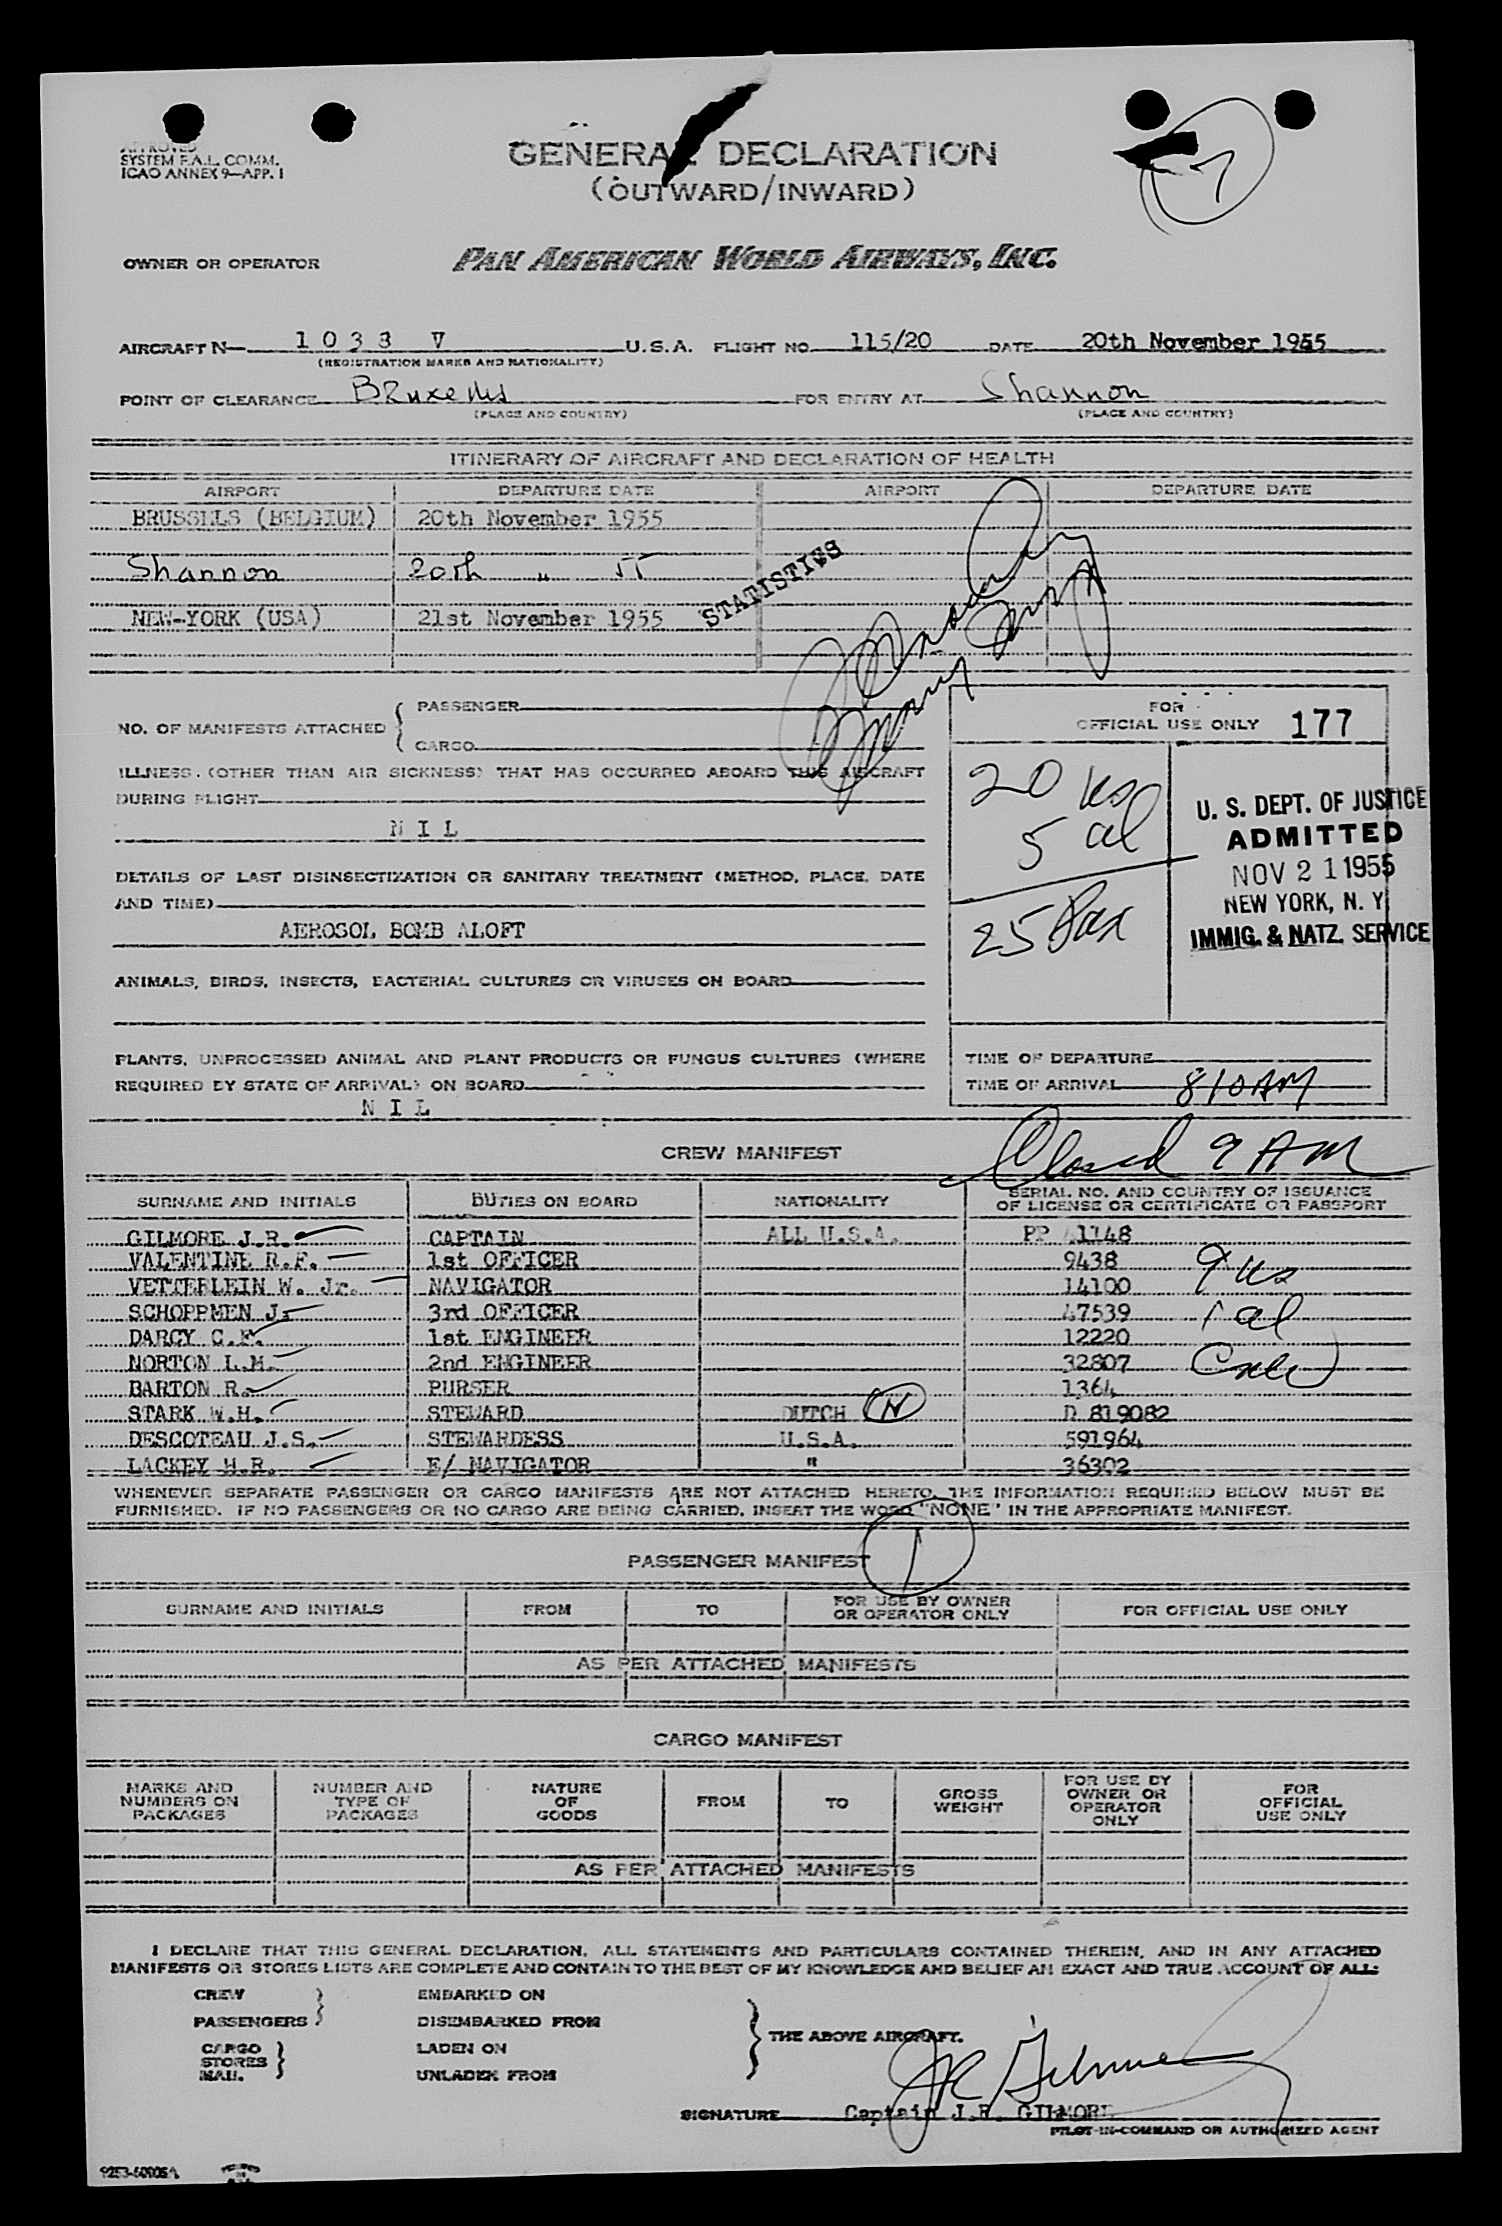 APPROVED
SYSTEM F.A.L. COMM.
ICAO ANNEX 9—APP. 1
GENERAL DECLARATION
(OUTWARD/INWARD)
7
OWNER OR OPERATOR PAN AMERICAN WORLD AIRWAYS, INC.
AIRCRAFT N— 1033 V U.S.A. FLIGHT NO. 115/20 DATE 20th November 1955
(REGISTRATION MARKS AND NATIONALITY)
POINT OF CLEARANCE Bruxelles FOR ENTRY AT Shannon
(PLACE AND COUNTRY) (PLACE AND COUNTRY)
ITINERARY OF AIRCRAFT AND DECLARATION OF HEALTH
AIRPORT DEPARTURE DATE AIRPORT DEPARTURE DATE
BRUSSELS (BELGIUM) 20th November 1955
Shannon 20th " 55
NEW-YORK (USA) 21st November 1955
STATISTICS
NO. OF MANIFESTS ATTACHED { PASSENGER
CARGO
ILLNESS. (OTHER THAN AIR SICKNESS) THAT HAS OCCURRED ABOARD THIS AIRCRAFT
DURING FLIGHT
NIL
DETAILS OF LAST DISINSECTIZATION OR SANITARY TREATMENT (METHOD, PLACE, DATE
AND TIME)
AEROSOL BOMB ALOFT
ANIMALS, BIRDS, INSECTS, BACTERIAL CULTURES OR VIRUSES ON BOARD
PLANTS, UNPROCESSED ANIMAL AND PLANT PRODUCTS OR FUNGUS CULTURES (WHERE
REQUIRED BY STATE OF ARRIVAL) ON BOARD
NIL
FOR
OFFICIAL USE ONLY 177
20 us
5 al
25 Pax
U. S. DEPT. OF JUSTICE
ADMITTED
NOV 21 1955
NEW YORK, N. Y.
IMMIG. & NATZ. SERVICE
TIME OF DEPARTURE
TIME OF ARRIVAL 810 AM
Closed 9 AM
CREW MANIFEST
SURNAME AND INITIALS DUTIES ON BOARD NATIONALITY SERIAL NO. AND COUNTRY OF ISSUANCE
OF LICENSE OR CERTIFICATE OR PASSPORT
GILMORE J.R. CAPTAIN ALL U.S.A. PP 1148
VALENTINE R.F. 1st OFFICER 9438
VETTERLEIN W. Jr. NAVIGATOR 14100
SCHOPPMEN J. 3rd OFFICER 47539
DARCY C.F. 1st ENGINEER 12220
NORTON L.M. 2nd ENGINEER 32807
BARTON R. PURSER 1364
STARK W.H. STEWARD DUTCH N D 819082
DESCOTEAU J.S. STEWARDESS U.S.A. 591964
LACKEY H.R. E/ NAVIGATOR " 36302
9 us
1 al
Crew
WHENEVER SEPARATE PASSENGER OR CARGO MANIFESTS ARE NOT ATTACHED HERETO, THE INFORMATION REQUIRED BELOW MUST BE
FURNISHED. IF NO PASSENGERS OR NO CARGO ARE BEING CARRIED, INSERT THE WORD "NONE" IN THE APPROPRIATE MANIFEST.
1
PASSENGER MANIFEST
SURNAME AND INITIALS FROM TO FOR USE BY OWNER
OR OPERATOR ONLY FOR OFFICIAL USE ONLY
AS PER ATTACHED MANIFESTS
CARGO MANIFEST
MARKS AND
NUMBERS ON
PACKAGES
NUMBER AND
TYPE OF
PACKAGES
NATURE
OF
GOODS
FROM
TO
GROSS
WEIGHT
FOR USE BY
OWNER OR
OPERATOR
ONLY
FOR
OFFICIAL
USE ONLY
AS PER ATTACHED MANIFESTS
I DECLARE THAT THIS GENERAL DECLARATION, ALL STATEMENTS AND PARTICULARS CONTAINED THEREIN, AND IN ANY ATTACHED
MANIFESTS OR STORES LISTS ARE COMPLETE AND CONTAIN TO THE BEST OF MY KNOWLEDGE AND BELIEF AN EXACT AND TRUE ACCOUNT OF ALL:
CREW } EMBARKED ON
PASSENGERS } DISEMBARKED FROM
CARGO } LADEN ON
STORES
MAIL } UNLADEN FROM
} THE ABOVE AIRCRAFT.
JR Gilmore
SIGNATURE Captain J.R. GILMORE
PILOT-IN-COMMAND OR AUTHORIZED AGENT